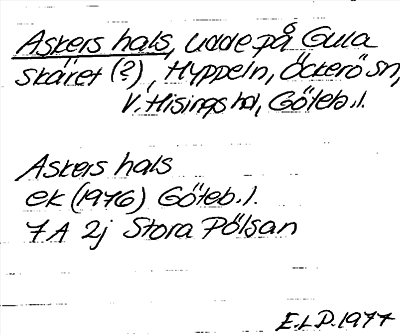 Askers hals, udde på Gula
skäret (?), Hyppeln, Öckerö sn,
V. Hisings hd, Göteb. l.
Askers hals
ek (1976) Göteb. l.
7A 2j Stora Pölsan
E.L.P. 1977